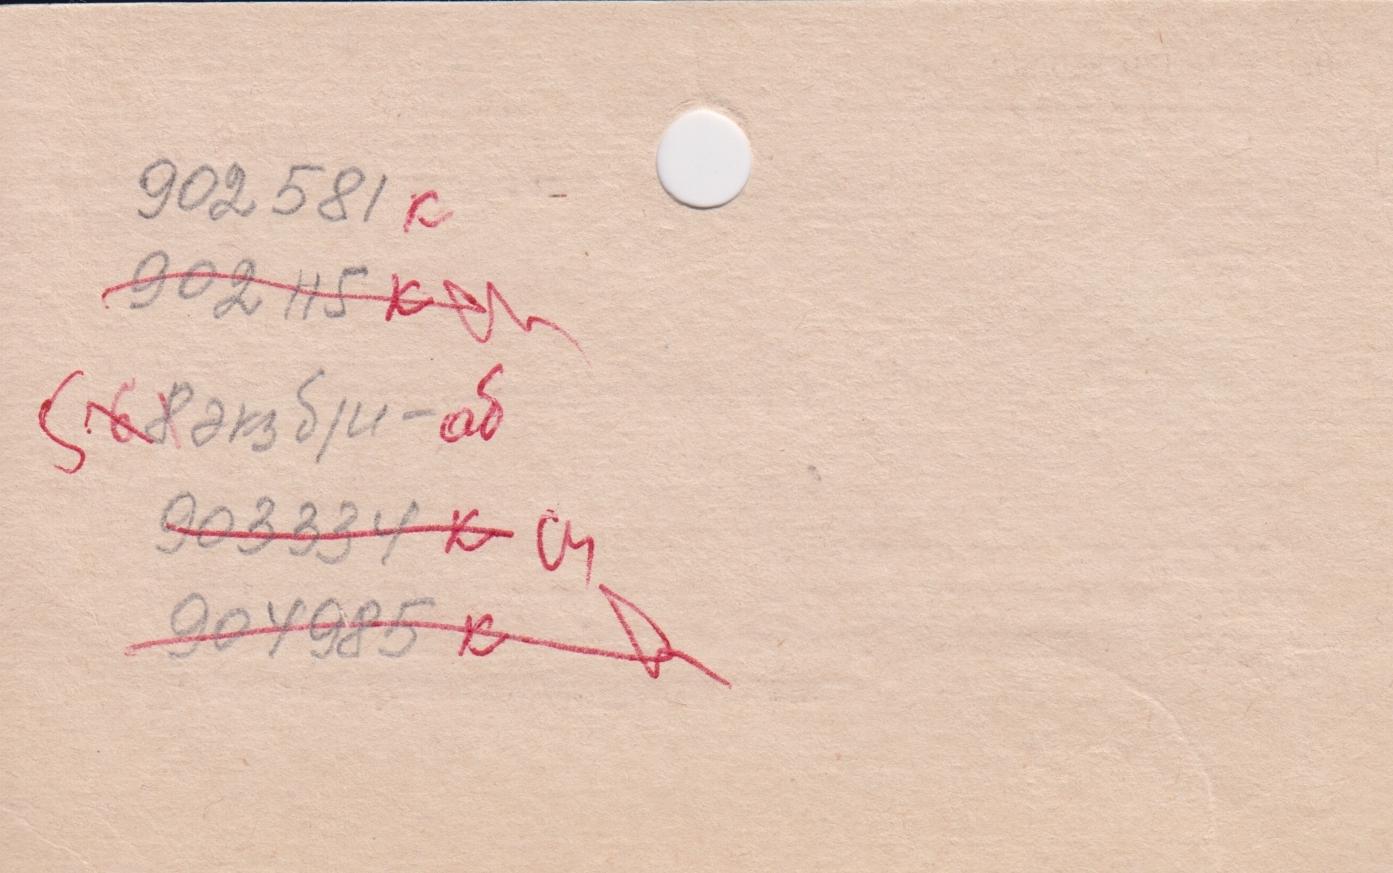 902581 к
902115 к
8 экз б/и - аб
903334 к
904985 к